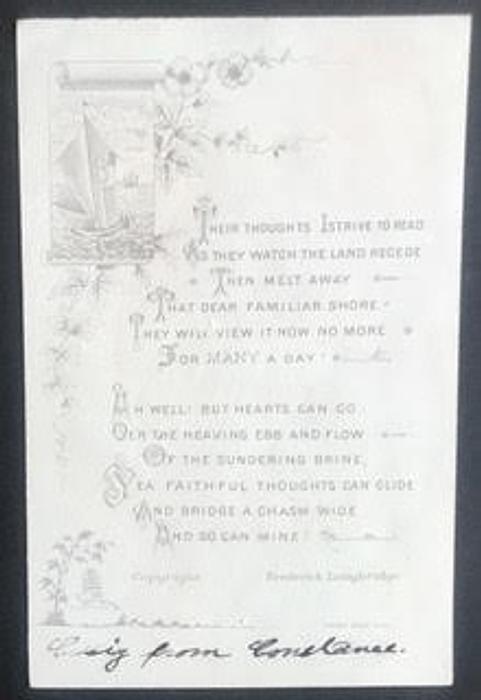 THEIR THOUGHTS I STRIVE TO READ
AS THEY WATCH THE LAND RECEDE
THEN MELT AWAY
THAT DEAR FAMILIAR SHORE.
THEY WILL VIEW IT NOW NO MORE
FOR MANY A DAY!
AH WELL! BUT HEARTS CAN GO
O'ER THE HEAVING EBB AND FLOW
OF THE SUNDERING BRINE,
YEA FAITHFUL THOUGHTS CAN GLIDE
AND BRIDGE A CHASM WIDE
AND SO CAN MINE!
Copyright Frederick Langbridge
from Constance.